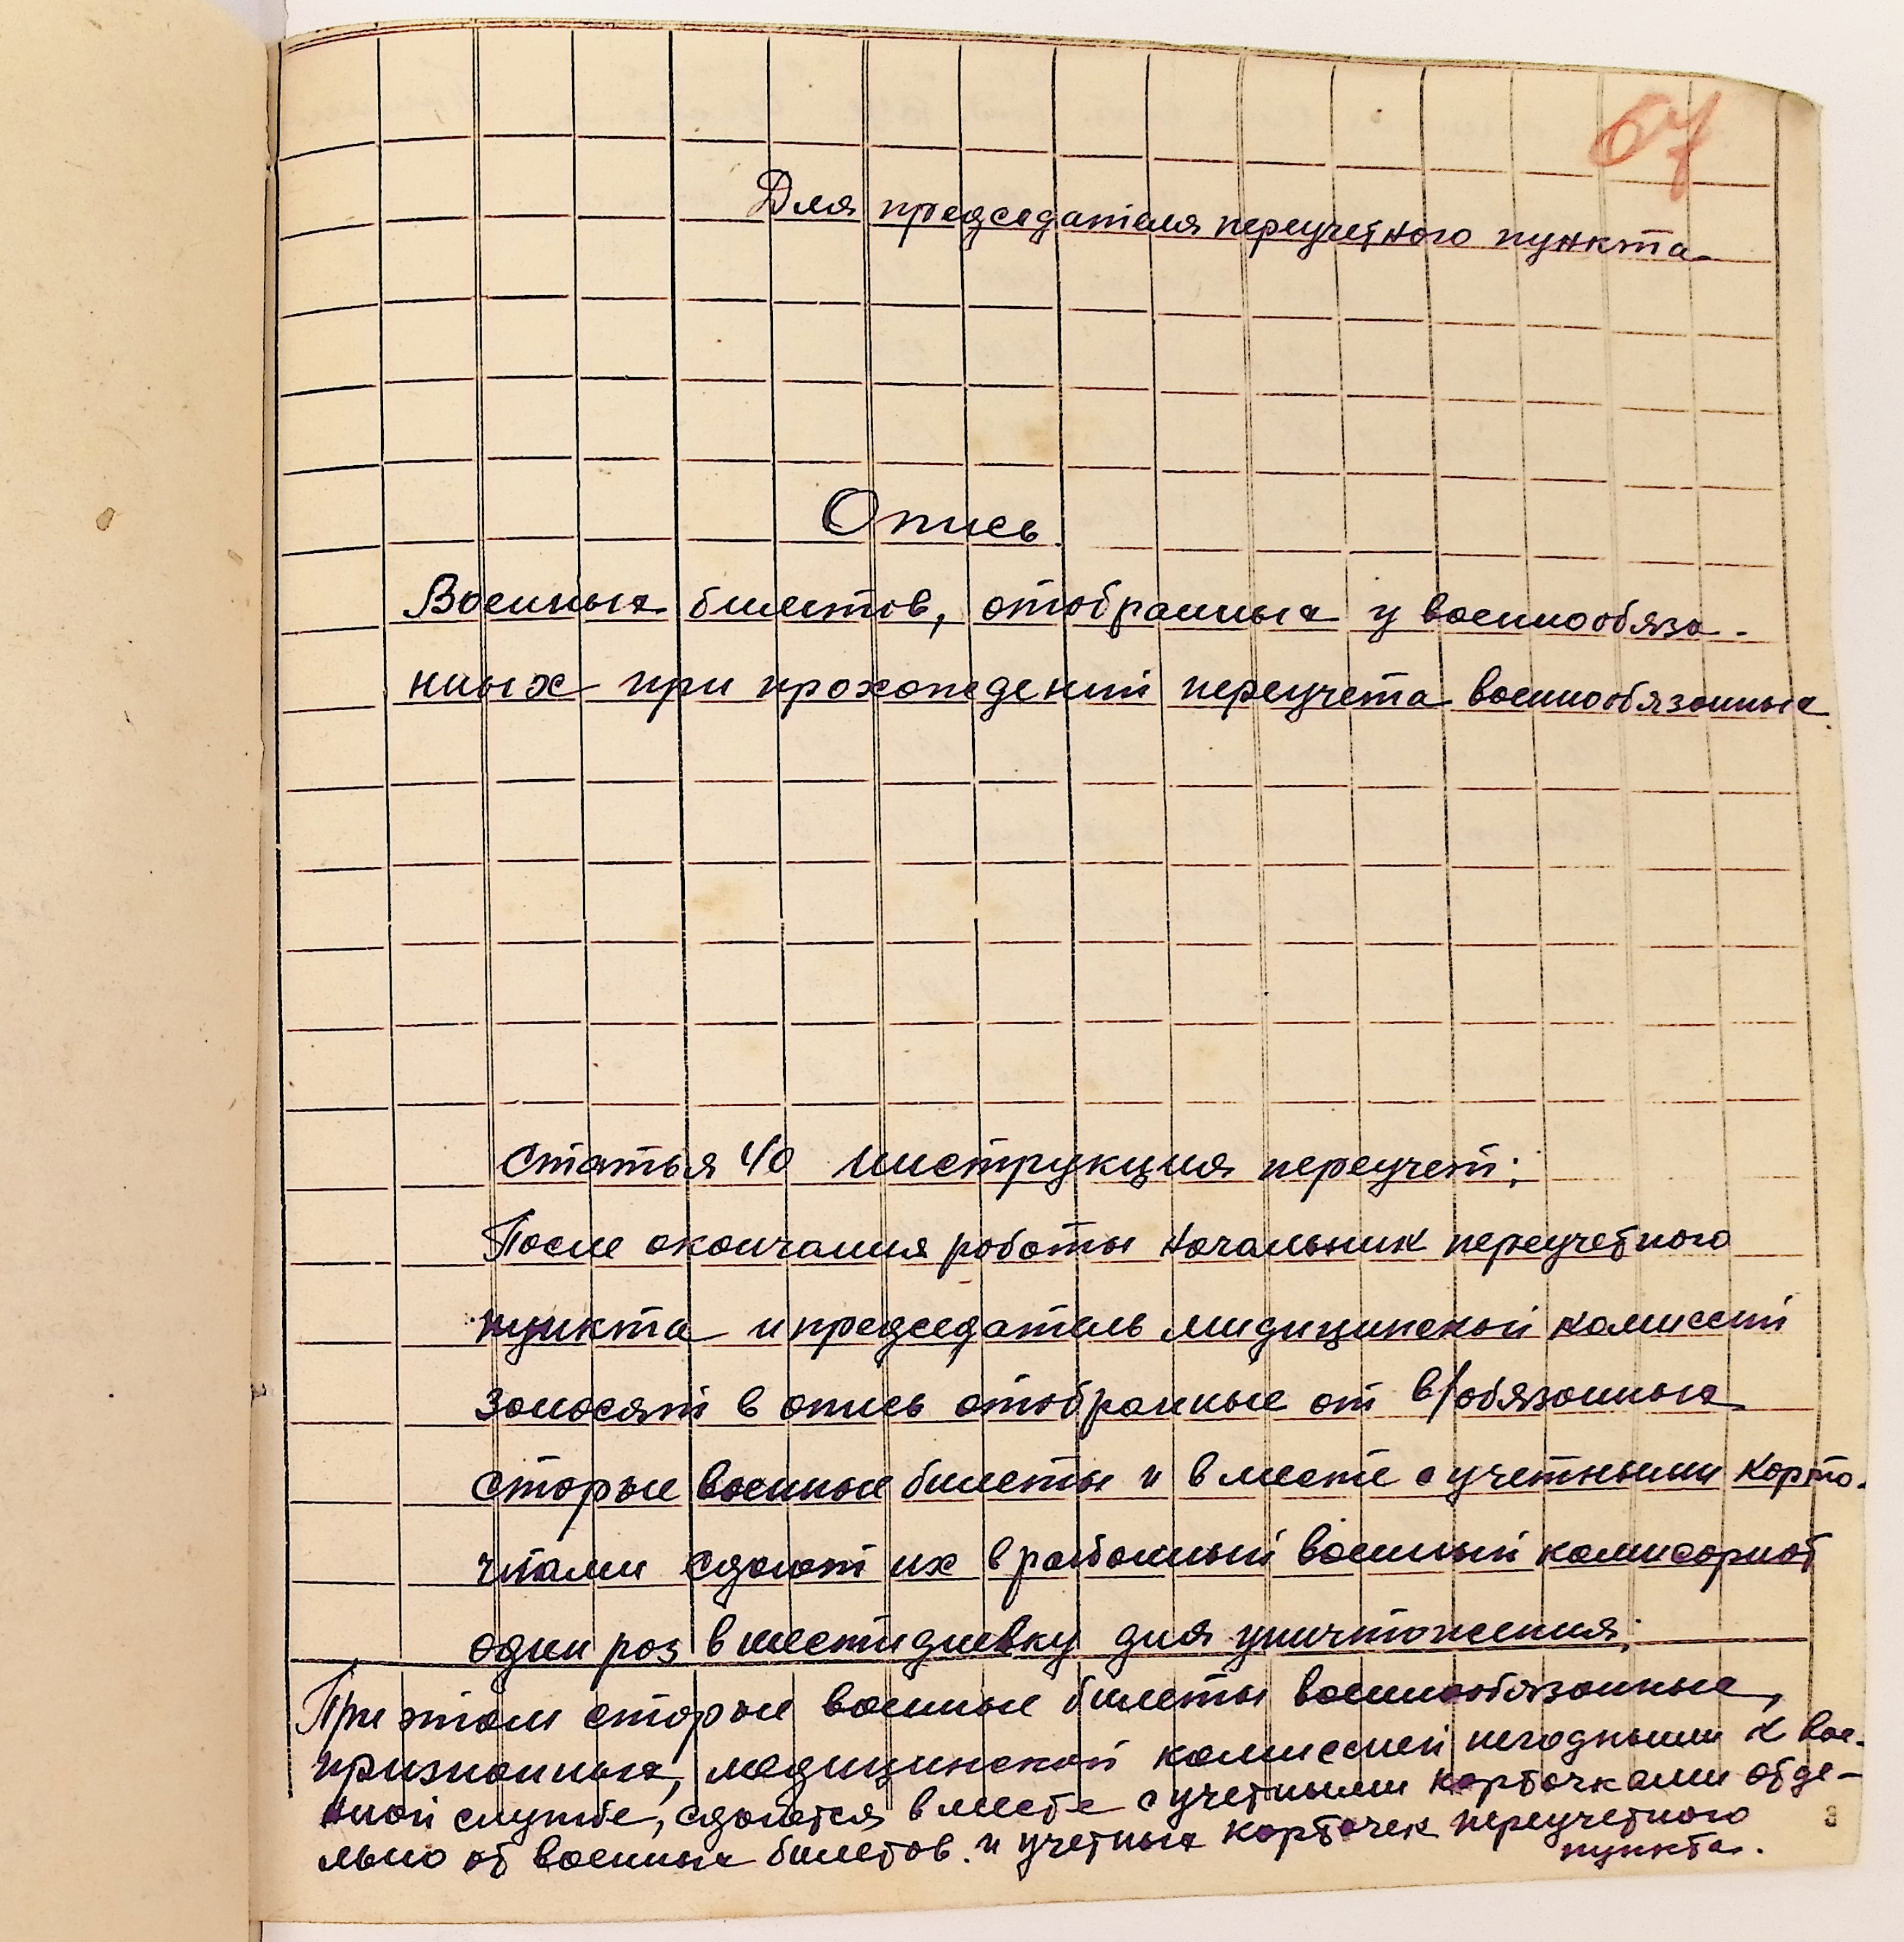 67
Для председателя переучетного пункта
Опись
Военных билетов, отобранных у военнообяза-
нных при прохождении переучета военнообязанных
Статья 40 инструкция переучет;
После окончания работы начальник переучетного
пункта и председатель медицинской комиссии
заносят в опись отобранные от в/обязанных
старые военные билеты и вместе с учетными карто-
чками сдают их в районный военный комисариат
один раз в шестидневку для уничтожения;
При этом старые военные билеты военнообязанные,
признанных, медицинской комиссией негодными к вое-
нной службе, сдаются вместе с учетными карточками отде-
льно от военных билетов. и учетных карточек переучетного
пункта.